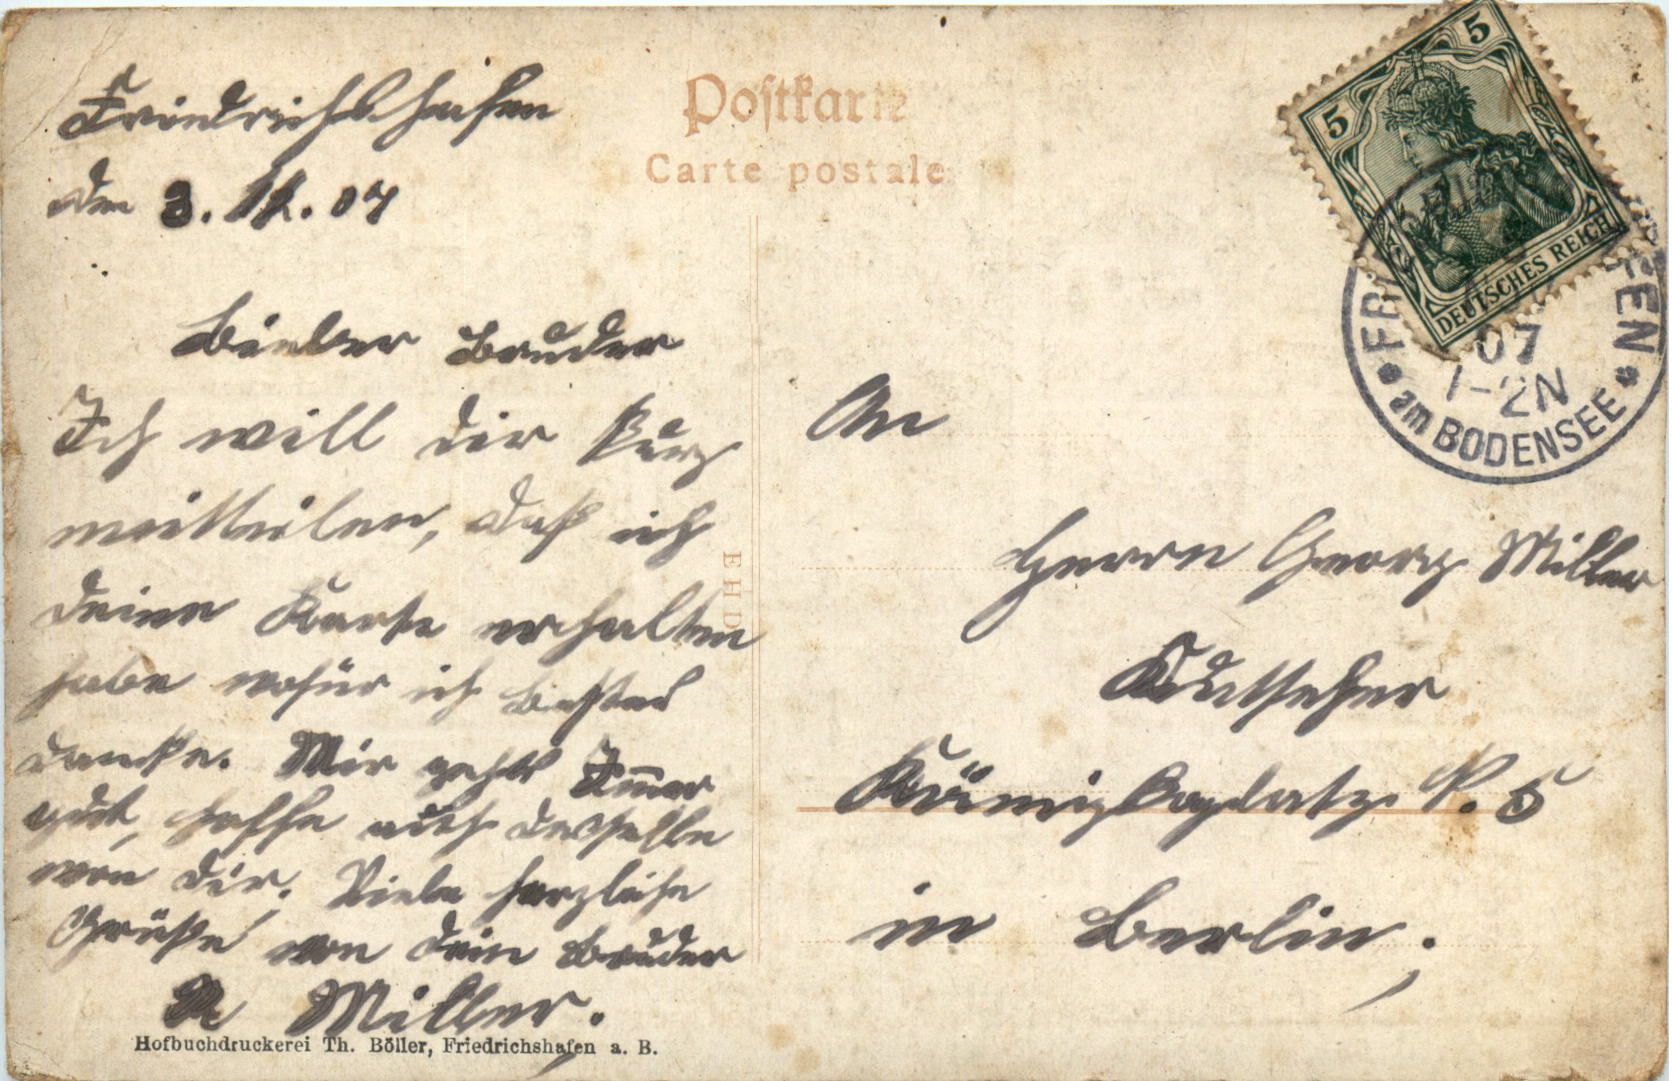 Postkarte
Carte postale
Friedrichshafen
den 3. 12. 07
Lieber Bruder
Ich will dir kurz
mitteilen, daß ich
deine Karte erhalten
habe wofür ich bestens
danke. Mir geht's Immer
gut, hoffe auch dasselbe
von dir. Viele herzliche
Grüße von dein Bruder
A Miller.
Hofbuchdruckerei Th. Böller, Friedrichshafen a. B.
EHD
5 5
DEUTSCHES REICH
07
1-2N
am BODENSEE
An
Herrn Georg Miller
Kutscher
Königsplatz N. 5
in Berlin.